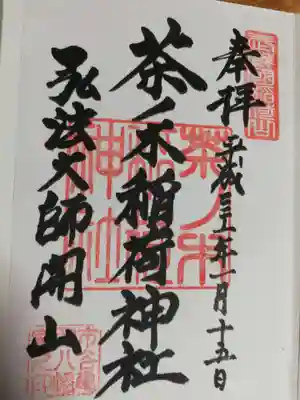 奉拝
平成三十一年一月十五日
茶ノ木稲荷神社
弘法大師開山
茶ノ木
稲荷
神社